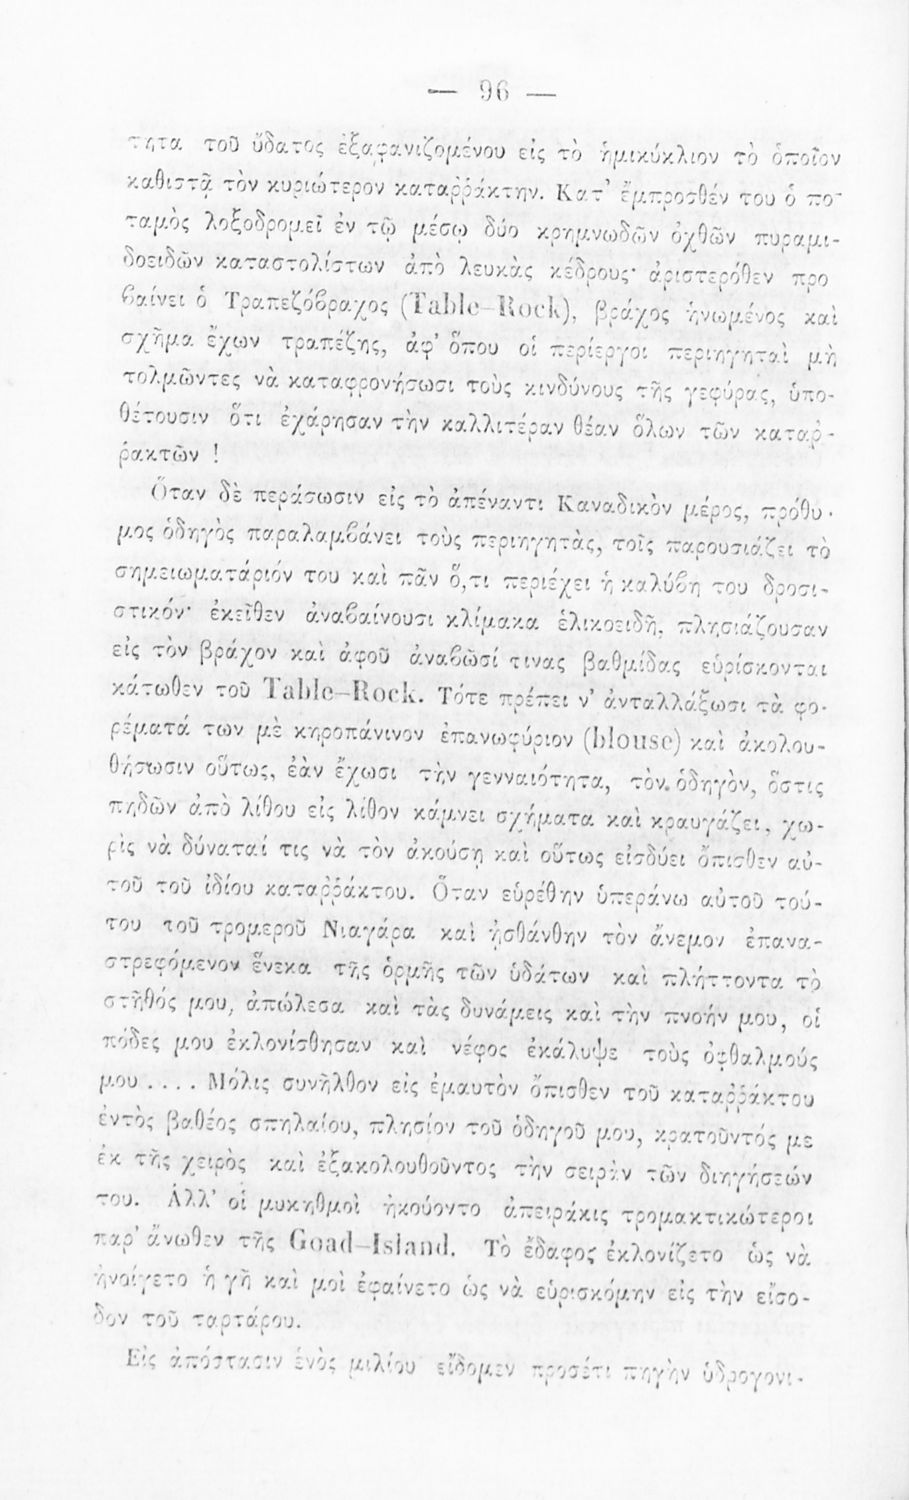 — 96 —
τητα τοῦ ὕδατος ἐξαφανιζομένου εἰς τὸ ἡμικύκλιον τὸ ὁποῖον
καθιστᾷ τὸν κυριώτερον καταῤῥάκτην. Κατ' ἔμπροσθέν του ὁ πο-
ταμὸς λοξοδρομεῖ ἐν τῷ μέσῳ δύο κρημνωδῶν ὀχθῶν πυραμι-
δοειδῶν καταστολίστων ἀπὸ λευκὰς κέδρους· ἀριστερόθεν προ
βαίνει ὁ Τραπεζόβραχος (Table-Rock), βράχος ἡνωμένος καὶ
σχῆμα ἔχων τραπέζης, ἀφ' ὅπου οἱ περίεργοι περιηγηταὶ μὴ
τολμῶντες νὰ καταφρονήσωσι τοὺς κινδύνους τῆς γεφύρας, ὑπο-
θέτουσιν ὅτι ἐχάρησαν τὴν καλλιτέραν θέαν ὅλων τῶν καταῤ-
ῥακτῶν !
Ὅταν δὲ περάσωσιν εἰς τὸ ἀπέναντι Καναδικὸν μέρος, πρόθυ-
μος ὁδηγὸς παραλαμβάνει τοὺς περιηγητὰς, τοῖς παρουσιάζει τὸ
σημειωματάριόν του καὶ πᾶν ὅ,τι περιέχει ἡ καλύβη του δροσι-
στικόν· ἐκεῖθεν ἀναβαίνουσι κλίμακα ἑλικοειδῆ, πλησιάζουσαν
εἰς τὸν βράχον καὶ ἀφοῦ ἀναβῶσί τινας βαθμίδας εὑρίσκονται
κάτωθεν τοῦ Table-Rock. Τότε πρέπει ν' ἀνταλλάξωσι τὰ φο-
ρέματά των μὲ κηροπάνινον ἐπανωφύριον (blouse) καὶ ἀκολου-
θήσωσιν οὕτως, ἐὰν ἔχωσι τὴν γενναιότητα, τὸν ὁδηγὸν, ὅστις
πηδῶν ἀπὸ λίθου εἰς λίθον κάμνει σχήματα καὶ κραυγάζει, χω-
ρὶς νὰ δύναταί τις νὰ τὸν ἀκούσῃ καὶ οὕτως εἰσδύει ὄπισθεν αὐ-
τοῦ τοῦ ἰδίου καταῤῥάκτου. Ὅταν εὑρέθην ὑπεράνω αὐτοῦ τού-
του τοῦ τρομεροῦ Νιαγάρα καὶ ᾐσθάνθην τὸν ἄνεμον ἐπανα-
στρεφόμενον ἕνεκα τῆς ὁρμῆς τῶν ὑδάτων καὶ πλήττοντα τὸ
στῆθός μου, ἀπώλεσα καὶ τὰς δυνάμεις καὶ τὴν πνοήν μου, οἱ
πόδες μου ἐκλονίσθησαν καὶ νέφος ἐκάλυψε τοὺς ὀφθαλμούς
μου . . . . Μόλις συνῆλθον εἰς ἐμαυτὸν ὄπισθεν τοῦ καταῤῥάκτου
ἐντὸς βαθέος σπηλαίου, πλησίον τοῦ ὁδηγοῦ μου, κρατοῦντός με
ἐκ τῆς χειρὸς καὶ ἐξακολουθοῦντος τὴν σειρὰν τῶν διηγήσεών
του. Ἀλλ' οἱ μυκηθμοὶ ἠκούοντο ἀπειράκις τρομακτικώτεροι
παρ' ἄνωθεν τῆς Goad-Island. Τὸ ἔδαφος ἐκλονίζετο ὡς νὰ
ἠνοίγετο ἡ γῆ καὶ μοὶ ἐφαίνετο ὡς νὰ εὑρισκόμην εἰς τὴν εἴσο-
δον τοῦ ταρτάρου.
Εἰς ἀπόστασιν ἑνὸς μιλίου εἴδομεν προσέτι πηγὴν ὑδρογονι-